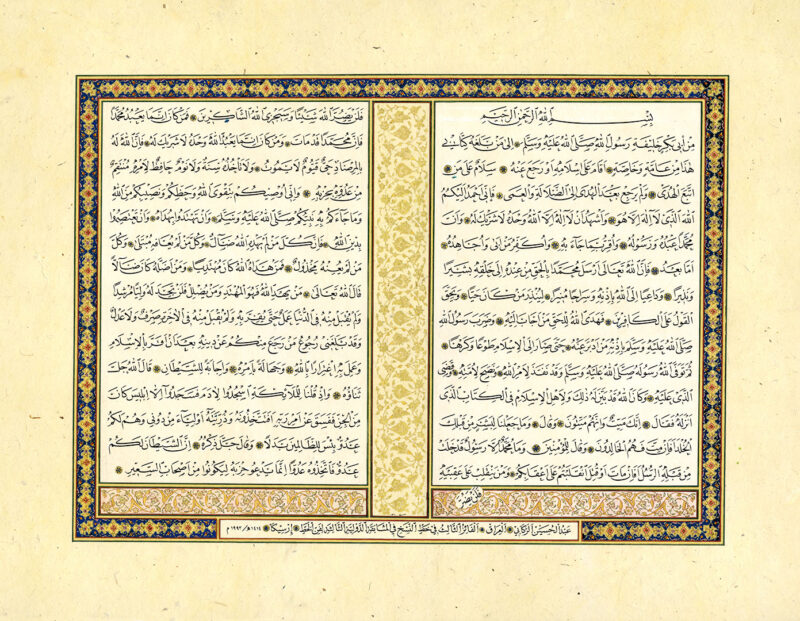 بسم الله الرحمن الرحيم
من أبي بكر خليفة رسول الله صلى الله عليه وسلم إلى من بلغه كتابي
هذا من عامة وخاصة أقام على إسلامه أو رجع عنه سلام على من
اتبع الهدى ولم يرجع بعد الهدى إلى الضلالة والعمى فإني أحمد إليكم
الله الذي لا إله إلا هو وأشهد أن لا إله إلا الله وحده لا شريك له وأن
محمدا عبده ورسوله وأقر بما جاء به وأكفر من أبى وأجاهده
أما بعد فإن الله تعالى أرسل محمدا بالحق من عنده إلى خلقه بشيرا
ونذيرا وداعيا إلى الله بإذنه وسراجا منيرا لينذر من كان حيا ويحق
القول على الكافرين فهدى الله للحق من أجاب إليه وضرب رسول الله
صلى الله عليه وسلم بإذنه من أدبر عنه حتى صار إلى الإسلام طوعا وكرها
ثم توفى الله رسوله صلى الله عليه وسلم وقد نفذ لأمر الله ونصح لأمته وقضى
عليه وكان الله قد بين له ذلك ولأهل الإسلام في الكتاب الذي
أنزله فقال إنك ميت وإنهم ميتون وقال وما جعلنا لبشر من قبلك
الخلد أفإن مت فهم الخالدون وقال للمؤمنين وما محمد إلا رسول قد خلت
من قبله الرسل أفإن مات أو قتل انقلبتم على أعقابكم ومن ينقلب على عقبيه
فلن يضر
فلن يضر الله شيئا وسيجزي الله الشاكرين فمن كان إنما يعبد محمدا
فإن محمدا قد مات ومن كان إنما يعبد الله وحده لا شريك له فإن الله له
بالمرصاد حي قيوم لا يموت ولا تأخذه سنة ولا نوم حافظ لأمره منتقم
من عدوه بحزبه وإني أوصيكم بتقوى الله وحظكم ونصيبكم من الله
وما جاءكم به نبيكم صلى الله عليه وسلم وأن تهتدوا بهداه وأن تعتصموا
بدين الله فإن كل من لم يهده الله ضال وكل من لم يعافه مبتلى وكل
من لم يعنه مخذول فمن هداه الله كان مهتديا ومن أضله كان ضالا
قال الله تعالى من يهد الله فهو المهتد ومن يضلل فلن تجد له وليا مرشدا
ولم يقبل منه في الدنيا عمل حتى يقر به ولم يقبل منه في الآخرة صرف ولا عدل
وقد بلغني رجوع من رجع منكم عن دينه بعد أن أقر بالإسلام
وعمل به اغترارا بالله وجهالة بأمره وإجابة للشيطان قال الله جل
ثناؤه وإذ قلنا للملائكة اسجدوا لآدم فسجدوا إلا إبليس كان
من الجن ففسق عن أمر ربه أفتتخذونه وذريته أولياء من دوني وهم لكم
عدو بئس للظالمين بدلا وقال جل ذكره إن الشيطان لكم
عدو فاتخذوه عدوا إنما يدعو حزبه ليكونوا من أصحاب السعير
عبد الحسين الركابي العراق الفائز الثالث في خط النسخ في المسابقة الدولية الثالثة لفن الخط إرسيكا ١٤١٤ هـ / ١٩٩٣ م